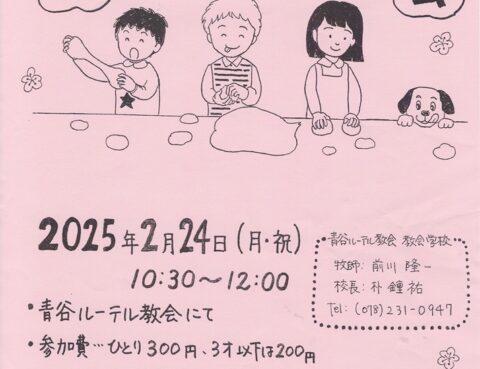 2025年2月24日(月・祝)
10:30〜12:00
・青谷ルーテル教会にて
・参加費…ひとり300円、3才以下は200円
青谷ルーテル教会 教会学校
牧師: 前川 隆一
校長: 朴 鍾祐
Tel: (078)231-0947